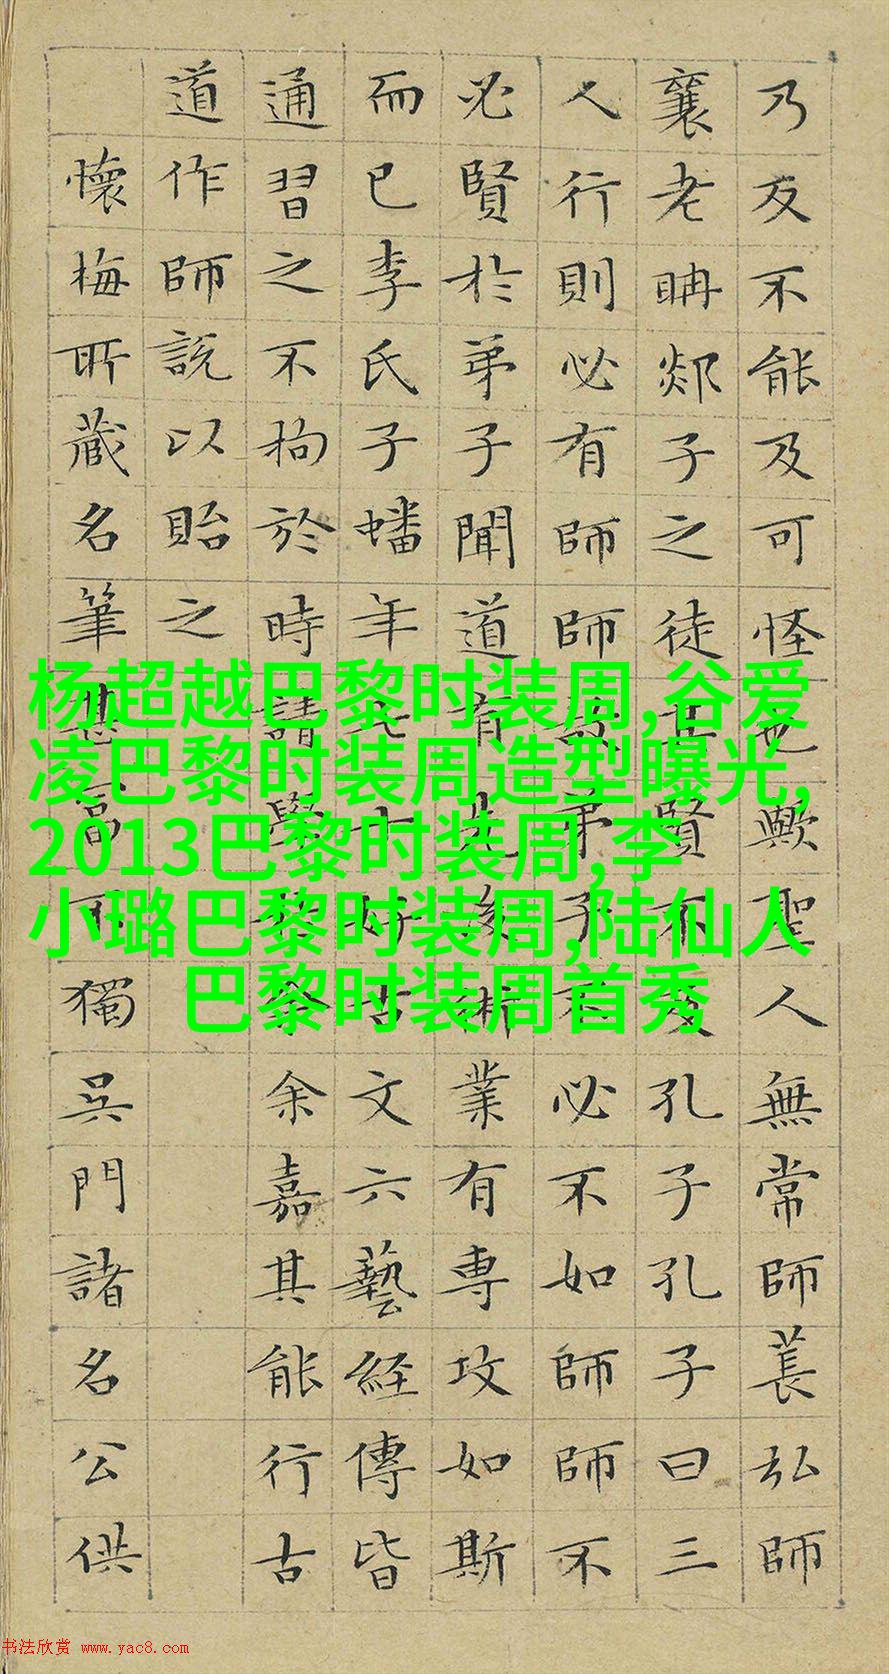 乃反不能及可怪也歟聖人無常師萇弘師
襄老聃郯子之徒其賢不及孔子孔子曰三
人行則必有師師故弟子不必不如師師不
必賢於弟子聞道有先後術業有專攻如斯
而已李氏子蟠年十七好古文六藝經傳皆
通習之不拘於時請學於余余嘉其能行古
道作師說以貽之
懷梅所藏名筆甚富不獨吳門諸名公供
杨超越巴黎时装周,谷爱
凌巴黎时装周造型曝光,
2013巴黎时装周,李
小璐巴黎时装周,陆仙人
巴黎时装周首秀
书法欣赏 www.yac8.com